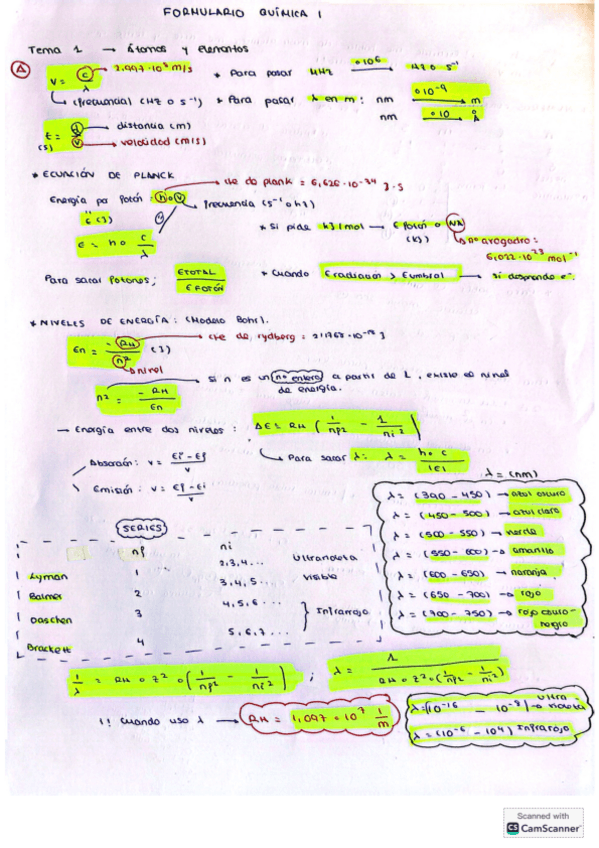 FORMULARIO QUÍMICA 1
Tema 1 → átomos y elementos
V = c/λ → 2.997·10⁸ m/s * Para pasar MHz —·10⁶→ Hz o s⁻¹
↳ (frecuencia) (Hz o s⁻¹) * Para pasar λ en m: nm —·10⁻⁹→ m
nm —·10→ Å
t = d/v → distancia (m)
(s) → velocidad (m/s)
* ECUACIÓN DE PLANCK
→ cte de plank = 6,626·10⁻³⁴ J·s
Energía po Fotón: h·v → frecuencia (s⁻¹ o hz)
E (J)
E = h · c/λ
* Si pide kJ/mol → E fotón · NA
(kJ) → nº avogadro:
6,022·10²³ mol⁻¹
Para sacar Fotones; ETOTAL/EFOTÓN * Cuando Eradiación > Eumbral → si desprende e⁻.
* NIVELES DE ENERGÍA: (Modelo Bohr).
En = -RH/n² (J) → cte de rydberg: 2,1768·10⁻¹⁸ J
→ nivel
n² = -RH/En → Si n es un nº entero a partir de 1, existe el nivel
de energía.
– Energía entre dos niveles: ΔE = RH (1/nf² - 1/ni²)
Absorción: v = Ei-Ef/v ↳ Para sacar λ: λ = h·c/|E|
Emisión: v = Ef-Ei/v
λ = (nm)
λ = (390 - 450) → azul oscuro
λ = (450 - 500) → azul claro
λ = (500 - 550) → verde
λ = (550 - 600) → amarillo
λ = (600 - 650) → naranja
λ = (650 - 700) → rojo
λ = (700 - 750) → rojo oscuro-
negro
SERIES
nf ni
Lyman 1 2,3,4... Ultravioleta
Balmer 2 3,4,5. Visible
Paschen 3 4,5,6... } Infrarrojo
Brackett 4 5,6,7...
1/λ = RH · Z² · (1/nf² - 1/ni²) ; λ = 1/RH · Z² · (1/nf² - 1/ni²)
!! Cuando uso λ → RH = 1,097·10⁷ 1/m
λ = (10⁻¹⁶ - 10⁻⁸) → ultra violeta
λ = (10⁻⁶ - 10⁴) Infrarojo
Scanned with
CS CamScanner